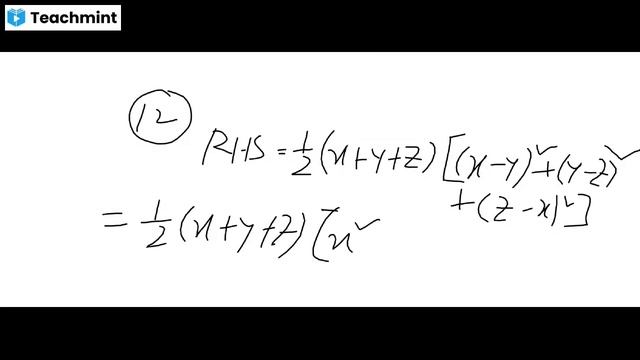 Teachmint
12
RHS = 1/2 (x+y+z) [(x-y)² + (y-z)²
+ (z-x)²]
= 1/2 (x+y+z) [x²